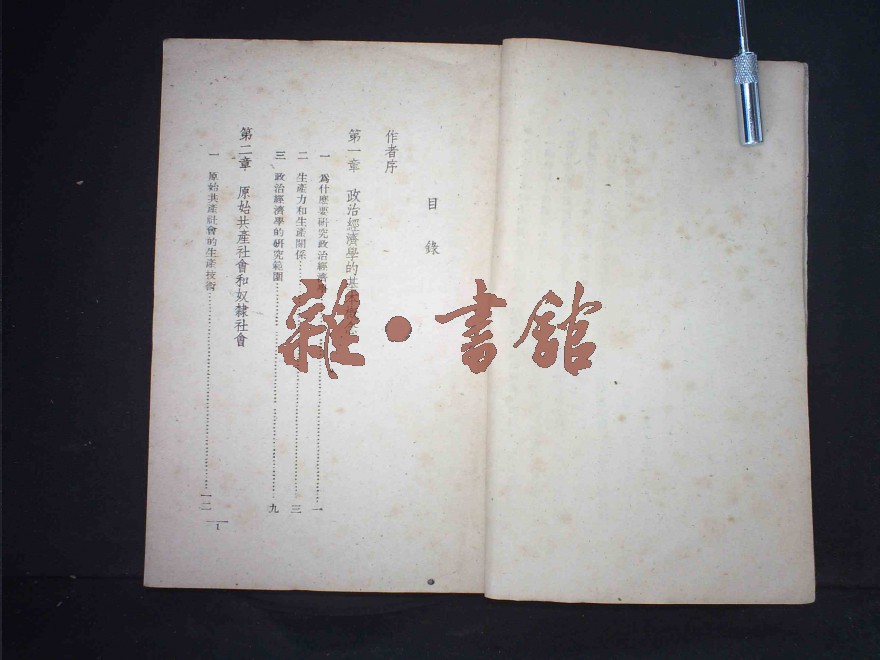 目錄
作者序
第一章 政治經濟學的基
一 爲什麽要研究政治經濟……一
二 生產力和生產關係……三
三 政治經濟學的研究範圍……九
第二章 原始共產社會和奴隸社會
一 原始共產社會的生產技術……一二
1
雜·書館